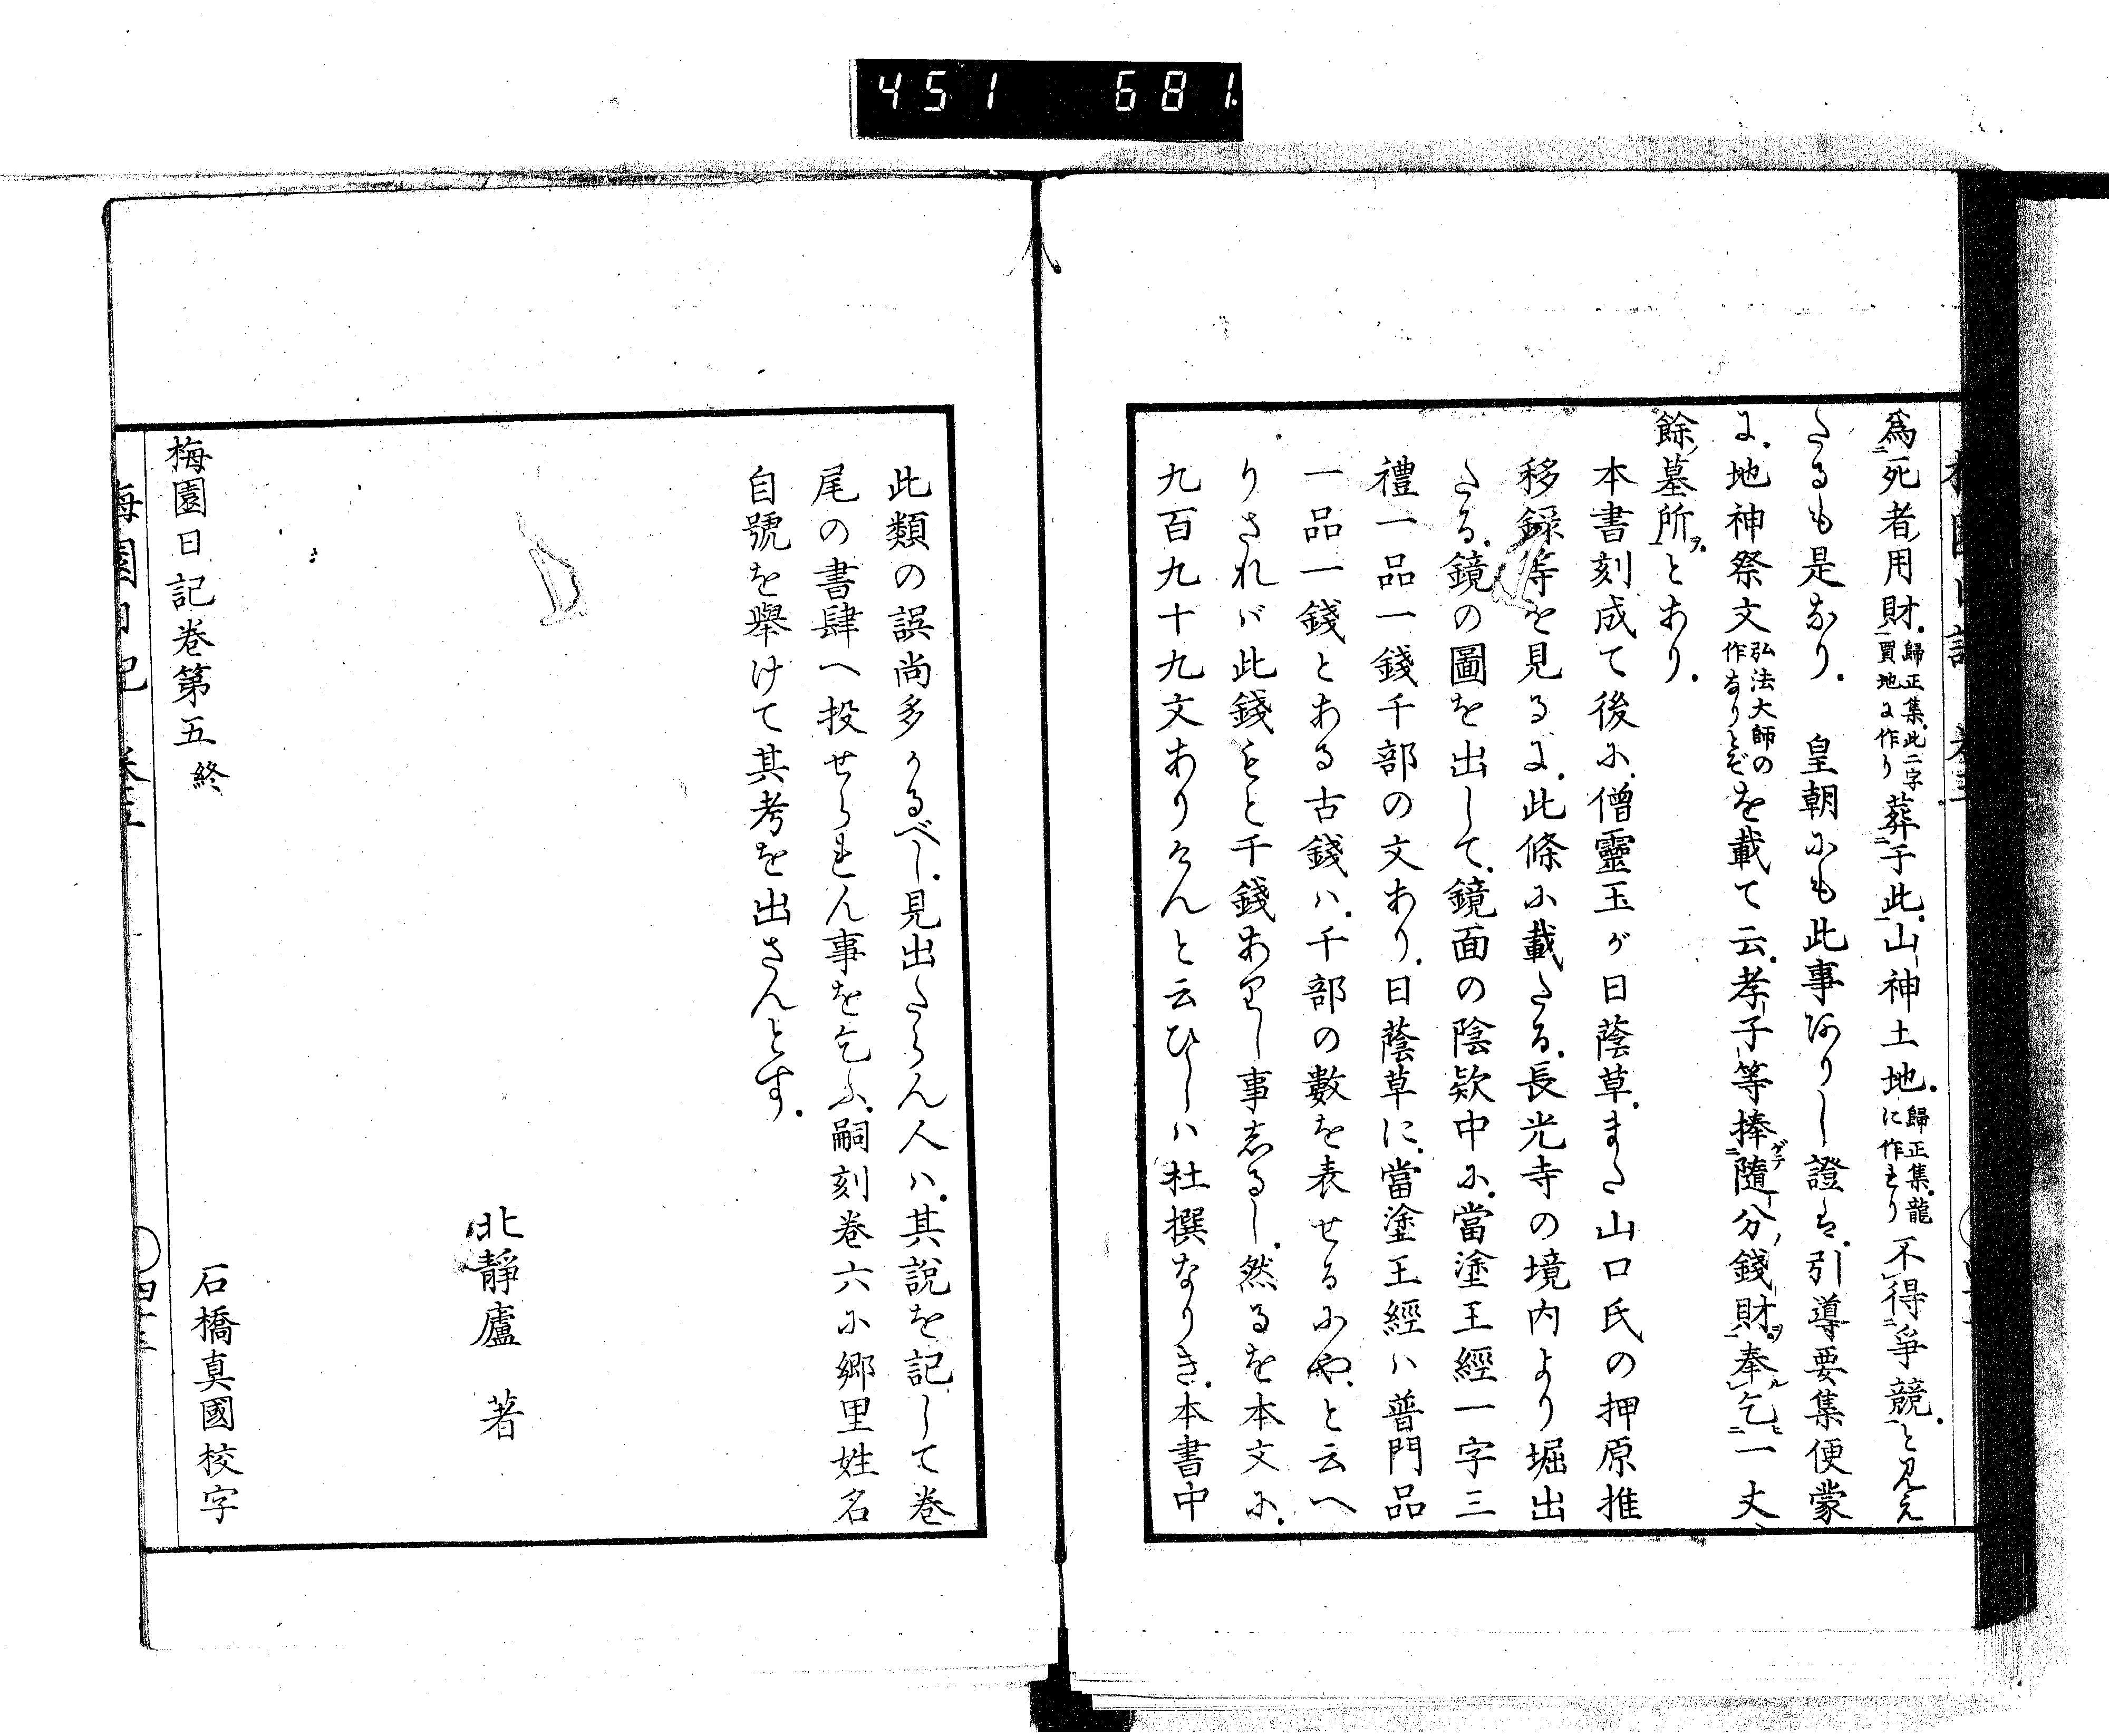 451 681
爲死者用財歸正集此二字買地に作り葬于此山神土地歸正集龍に作れり不得爭競と見え
たるも是なり 皇朝にも此事ありし證は引導要集便蒙
に地神祭文弘法大師の作なりとぞを載て云孝子等捧ゲテ隨分ノ錢財ヲ奉ル乞一丈
餘ノ墓所ヲとあり
本書刻成て後に僧靈玉が日蔭草また山口氏の押原推
移録等を見るに此條に載たる長光寺の境内より堀出
たる鏡の圖を出して鏡面の陰欵中に當塗王經一字三
禮一品一錢千部の文あり日蔭草に當塗王經ハ普門品
一品一錢とある古錢ハ千部の數を表せるにやと云へ
りされバ此錢もと千錢ありし事志るし然るを本文に
九百九十九文ありけんと云ひしハ杜撰なりき本書中
此類の誤尚多かるべし見出たらん人ハ其説を記して巻
尾の書肆へ投せられん事を乞ふ嗣刻巻六に郷里姓名
自號を舉けて其考を出さんとす
北靜廬 著
梅園日記巻第五終
石橋真國校字
梅園日記 巻五 四十三